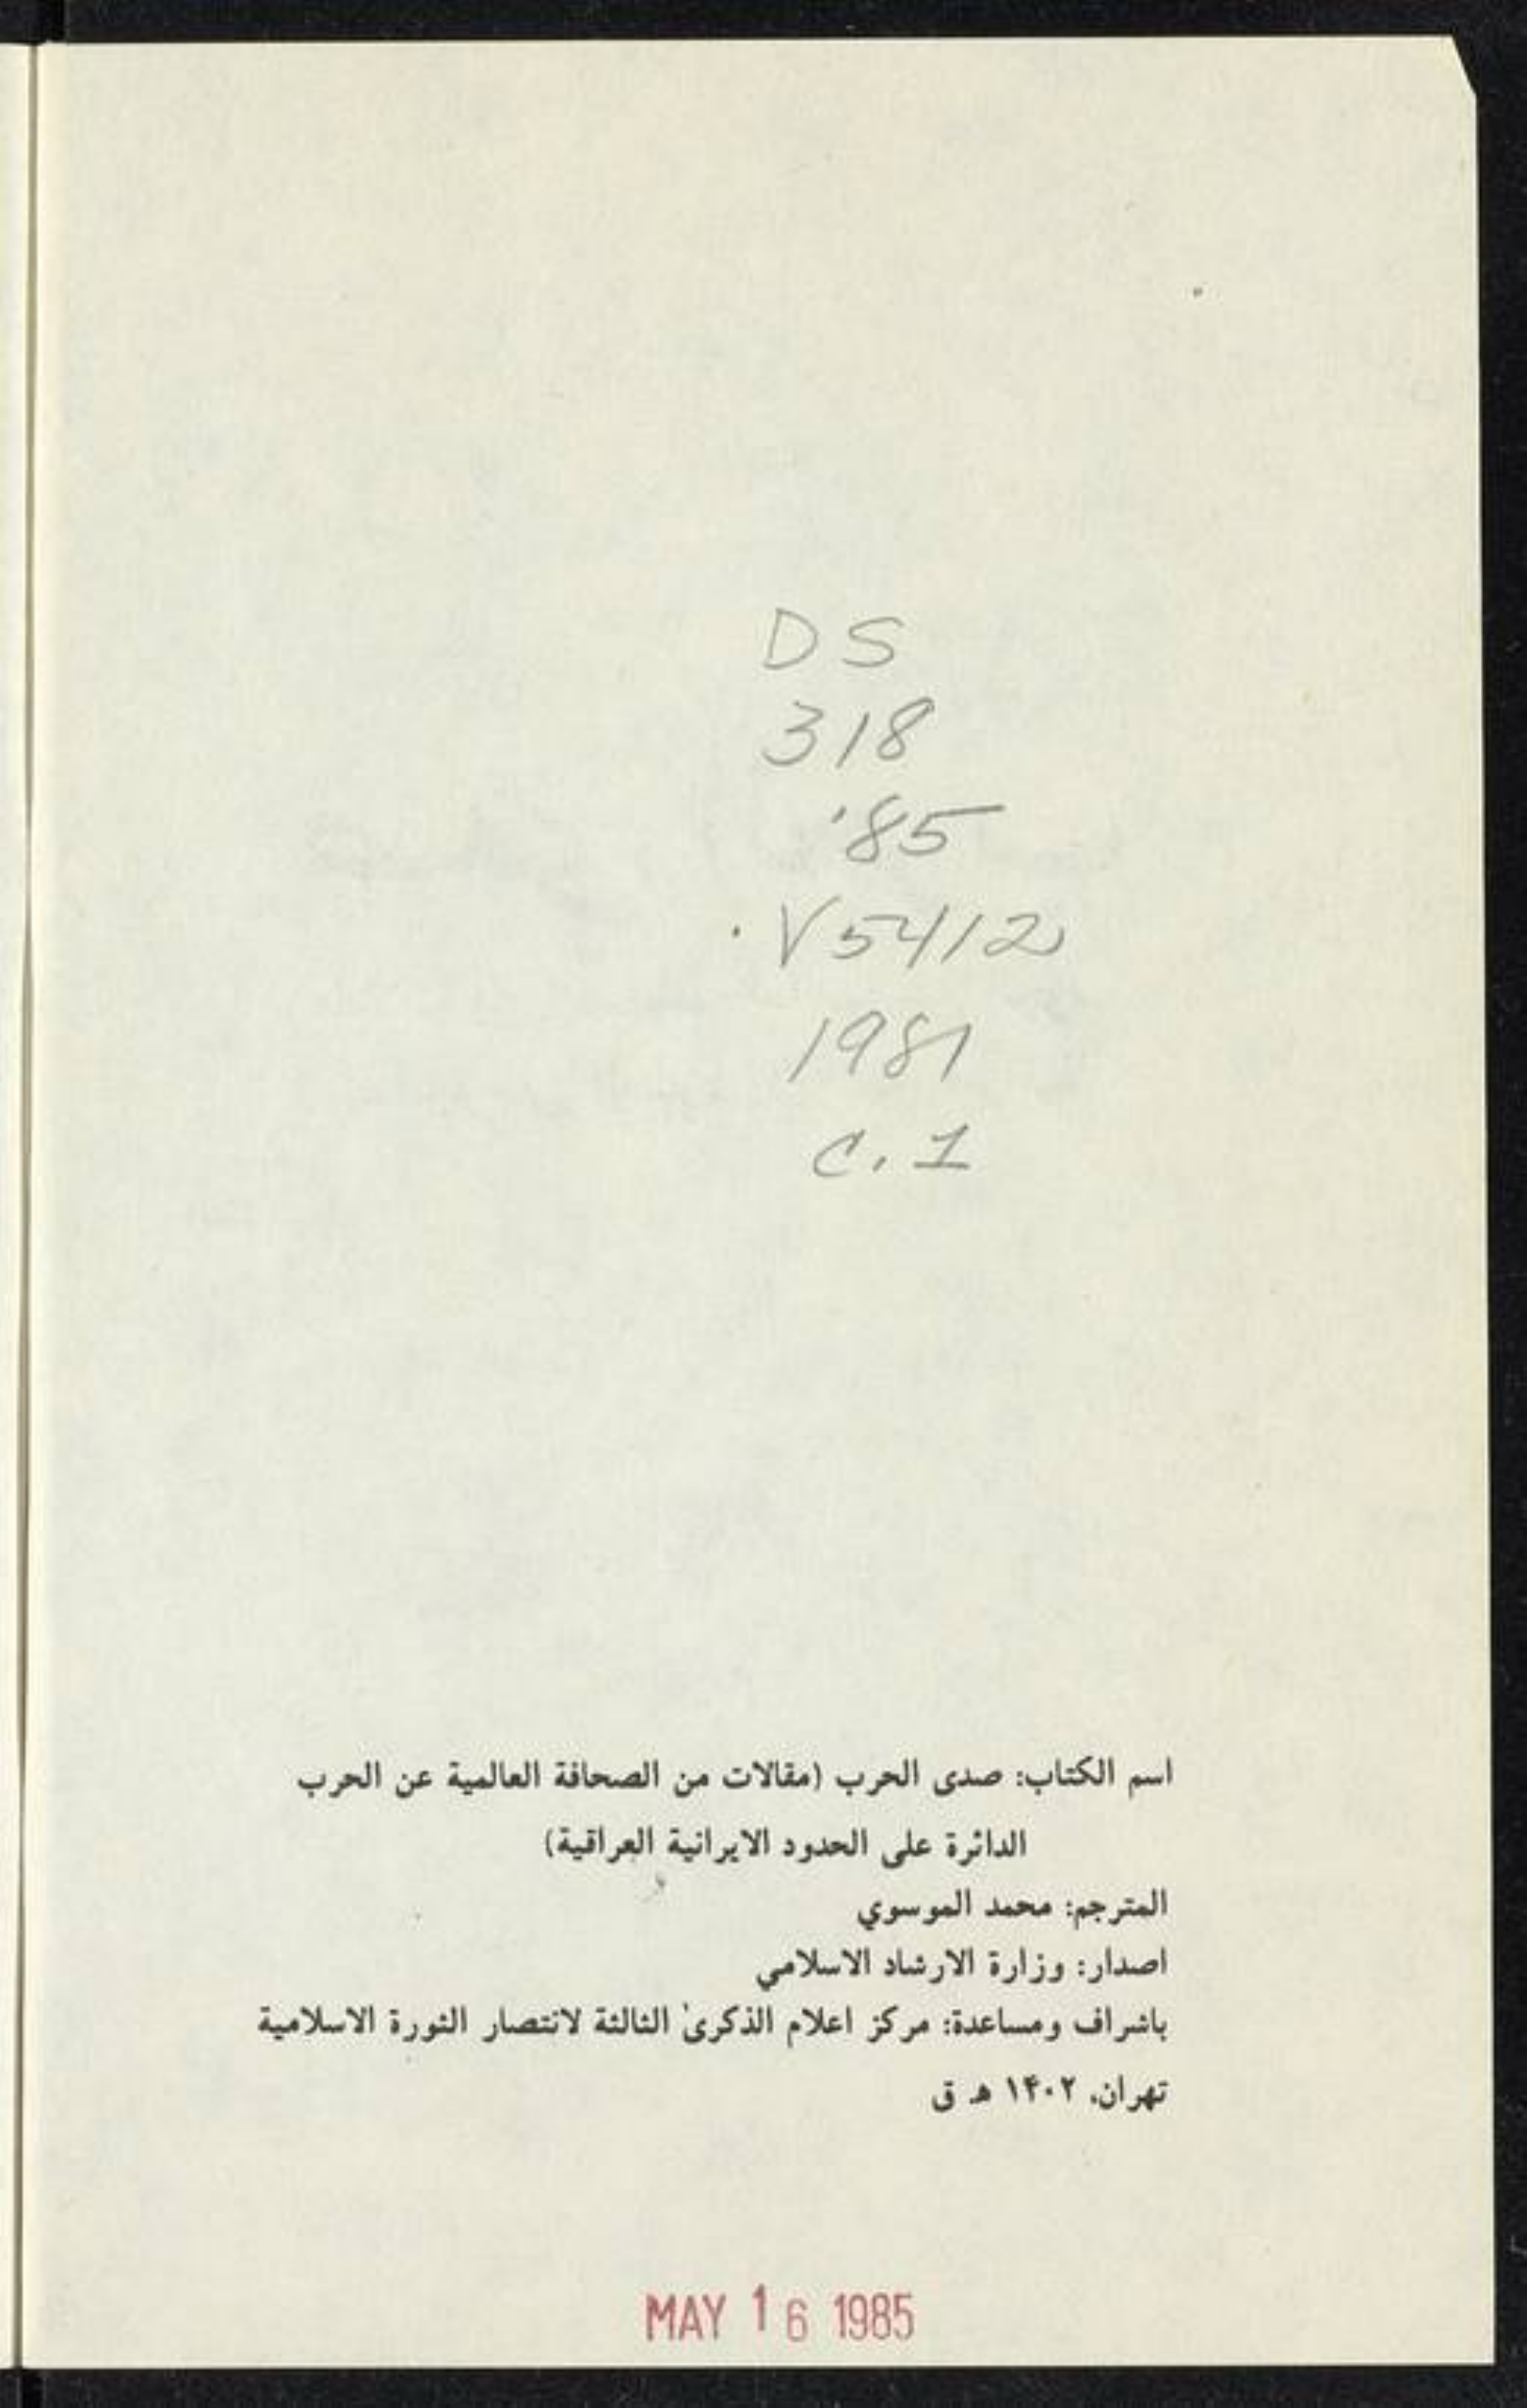 DS
318
'85
.V5412
1981
C.1
اسم الكتاب: صدى الحرب (مقالات من الصحافة العالمية عن الحرب
الدائرة على الحدود الايرانية العراقية)
المترجم: محمد الموسوي
اصدار: وزارة الارشاد الاسلامي
باشراف ومساعدة: مركز اعلام الذكرىٰ الثالثة لانتصار الثورة الاسلامية
تهران، ۱۴۰۲ هـ ق
MAY 16 1985